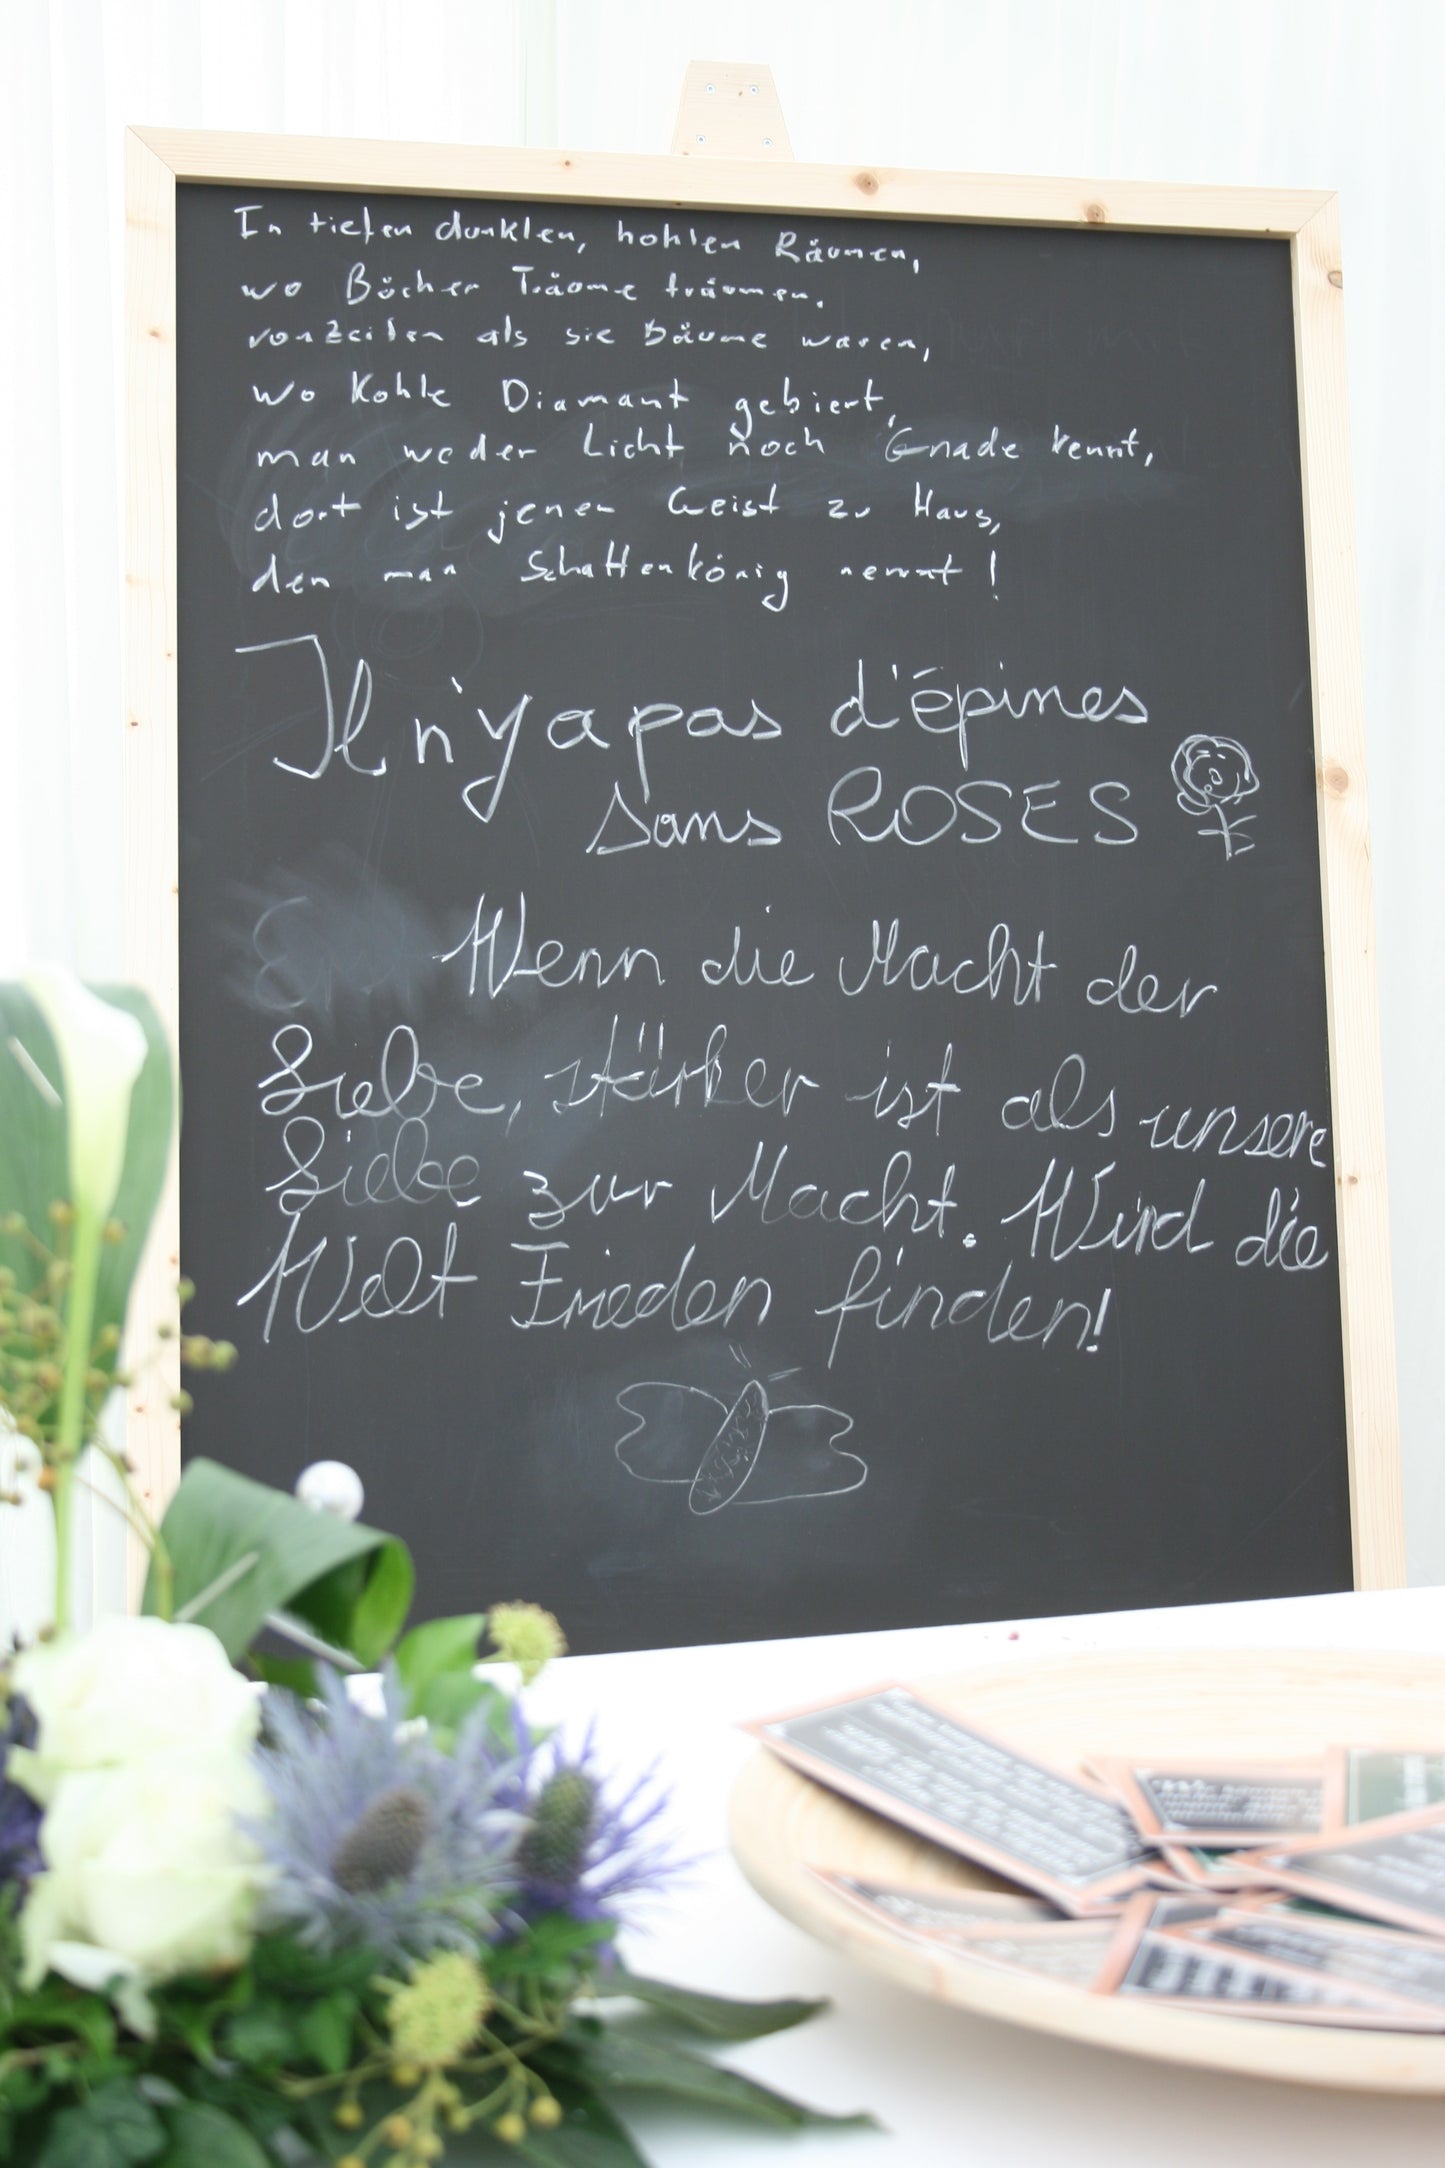 In tiefen dunklen, hohlen Räumen,
wo Bücher Träume träumen,
von Zeiten als sie Bäume waren,
wo Kohle Diamant gebiert,
man weder Licht noch Gnade kennt,
dort ist jener Geist zu Haus,
den man Schattenkönig nennt!
Il n'y a pas d'épines
sans ROSES
Wenn die Macht der
Liebe, stärker ist als unsere
Liebe zur Macht. Wird die
Welt Frieden finden!